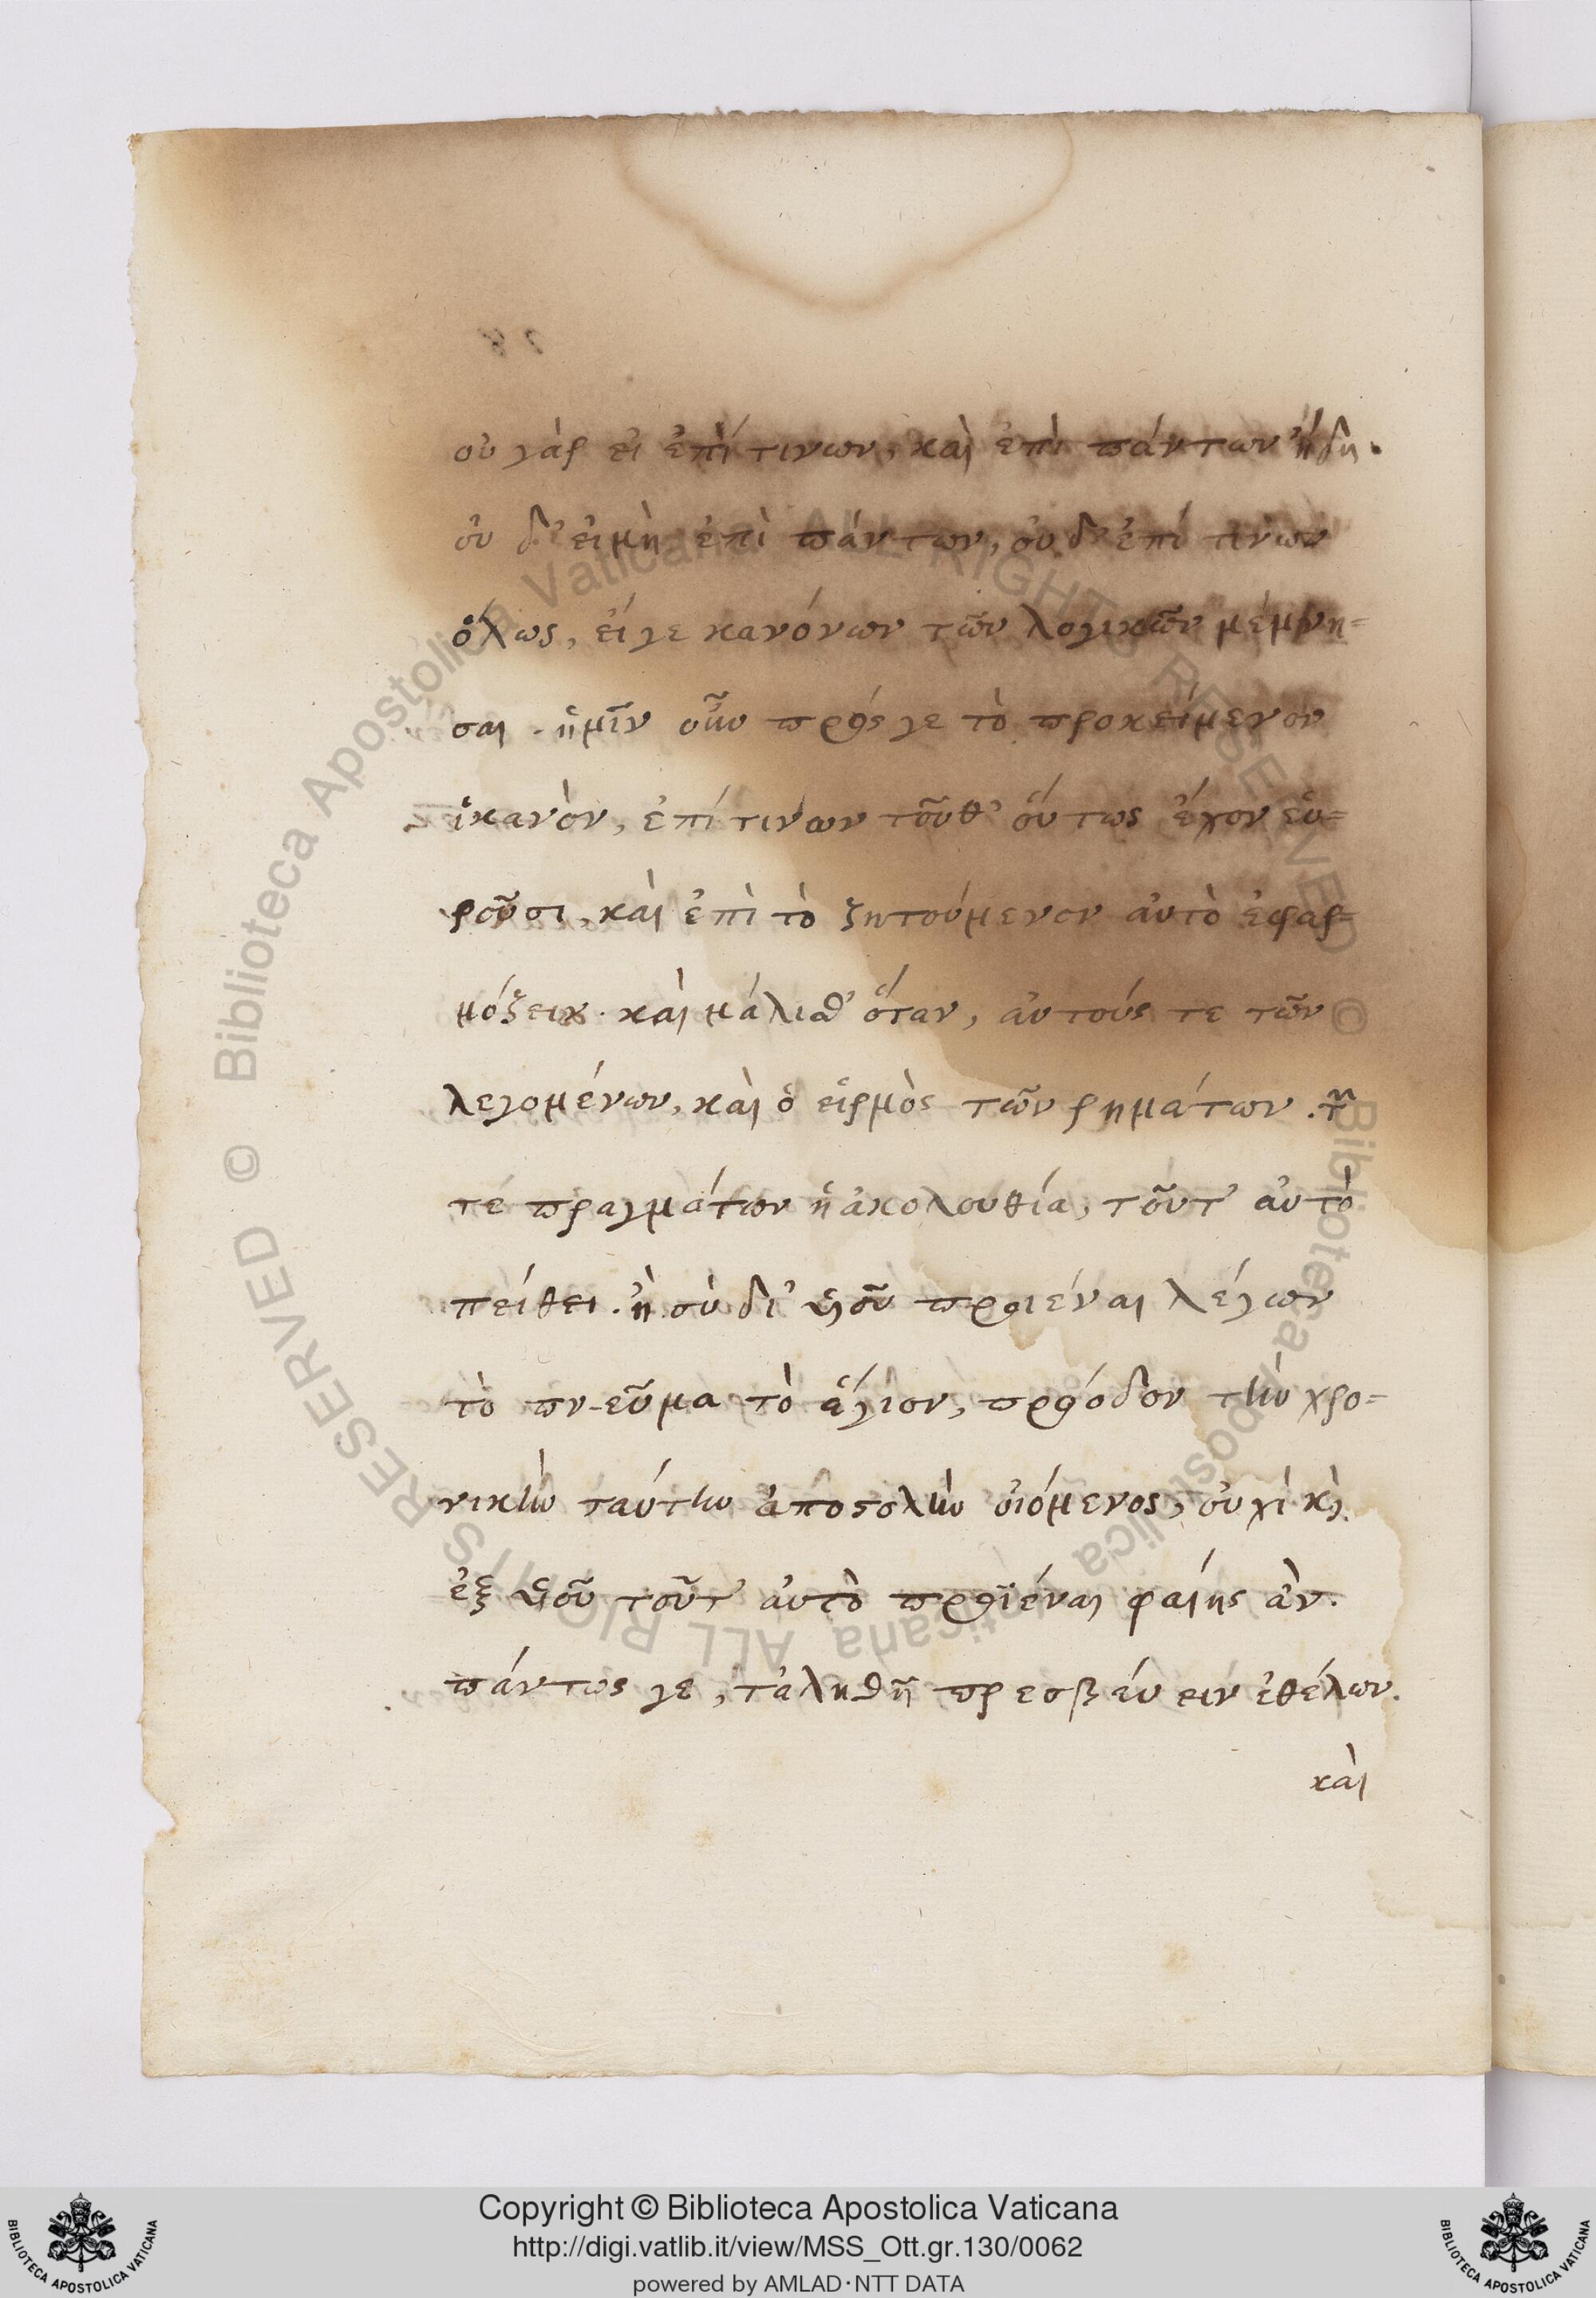 οὐ γὰρ εἰ ἐπί τινων, καὶ ἐπὶ πάντων ἤδη.
οὐ δ' εἰ μὴ ἐπὶ πάντων, οὐδ' ἐπί τινων
ὅλως, εἴγε κανόνων τῶν λογικῶν μέμνη=
σαι. ἡμῖν οὖν πρός γε τὸ προκείμενον
ἱκανὸν, ἐπί τινων τοῦθ' οὕτως ἔχον εὑ=
ροῦσι, καὶ ἐπὶ τὸ ζητούμενον αὐτὸ ἐφαρ=
μόζειν. καὶ μάλισθ' ὅταν, αὐτούς τε τῶν
λεγομένων, καὶ ὁ εἱρμὸς τῶν ρημάτων. τῶν
τέ πραγμάτων ἡ ἀκολουθία, τοῦτ' αὐτὸ
πείθει. ἢ σὺ δι' υἱοῦ προιέναι λέγων
τὸ πνεῦμα τὸ ἅγιον, πρόοδον τὴν χρο=
νικὴν ταύτην ἀποστολὴν οἰόμενος, οὐχὶ καὶ
ἐξ υἱοῦ τοῦτ' αὐτὸ προϊέναι φαίης ἂν.
πάντως γε, τἀληθῆ πρεσβεύειν ἐθέλων.
καὶ
Copyright © Biblioteca Apostolica Vaticana
http://digi.vatlib.it/view/MSS_Ott.gr.130/0062
powered by AMLAD·NTT DATA
BIBLIOTECA APOSTOLICA VATICANA
BIBLIOTECA APOSTOLICA VATICANA